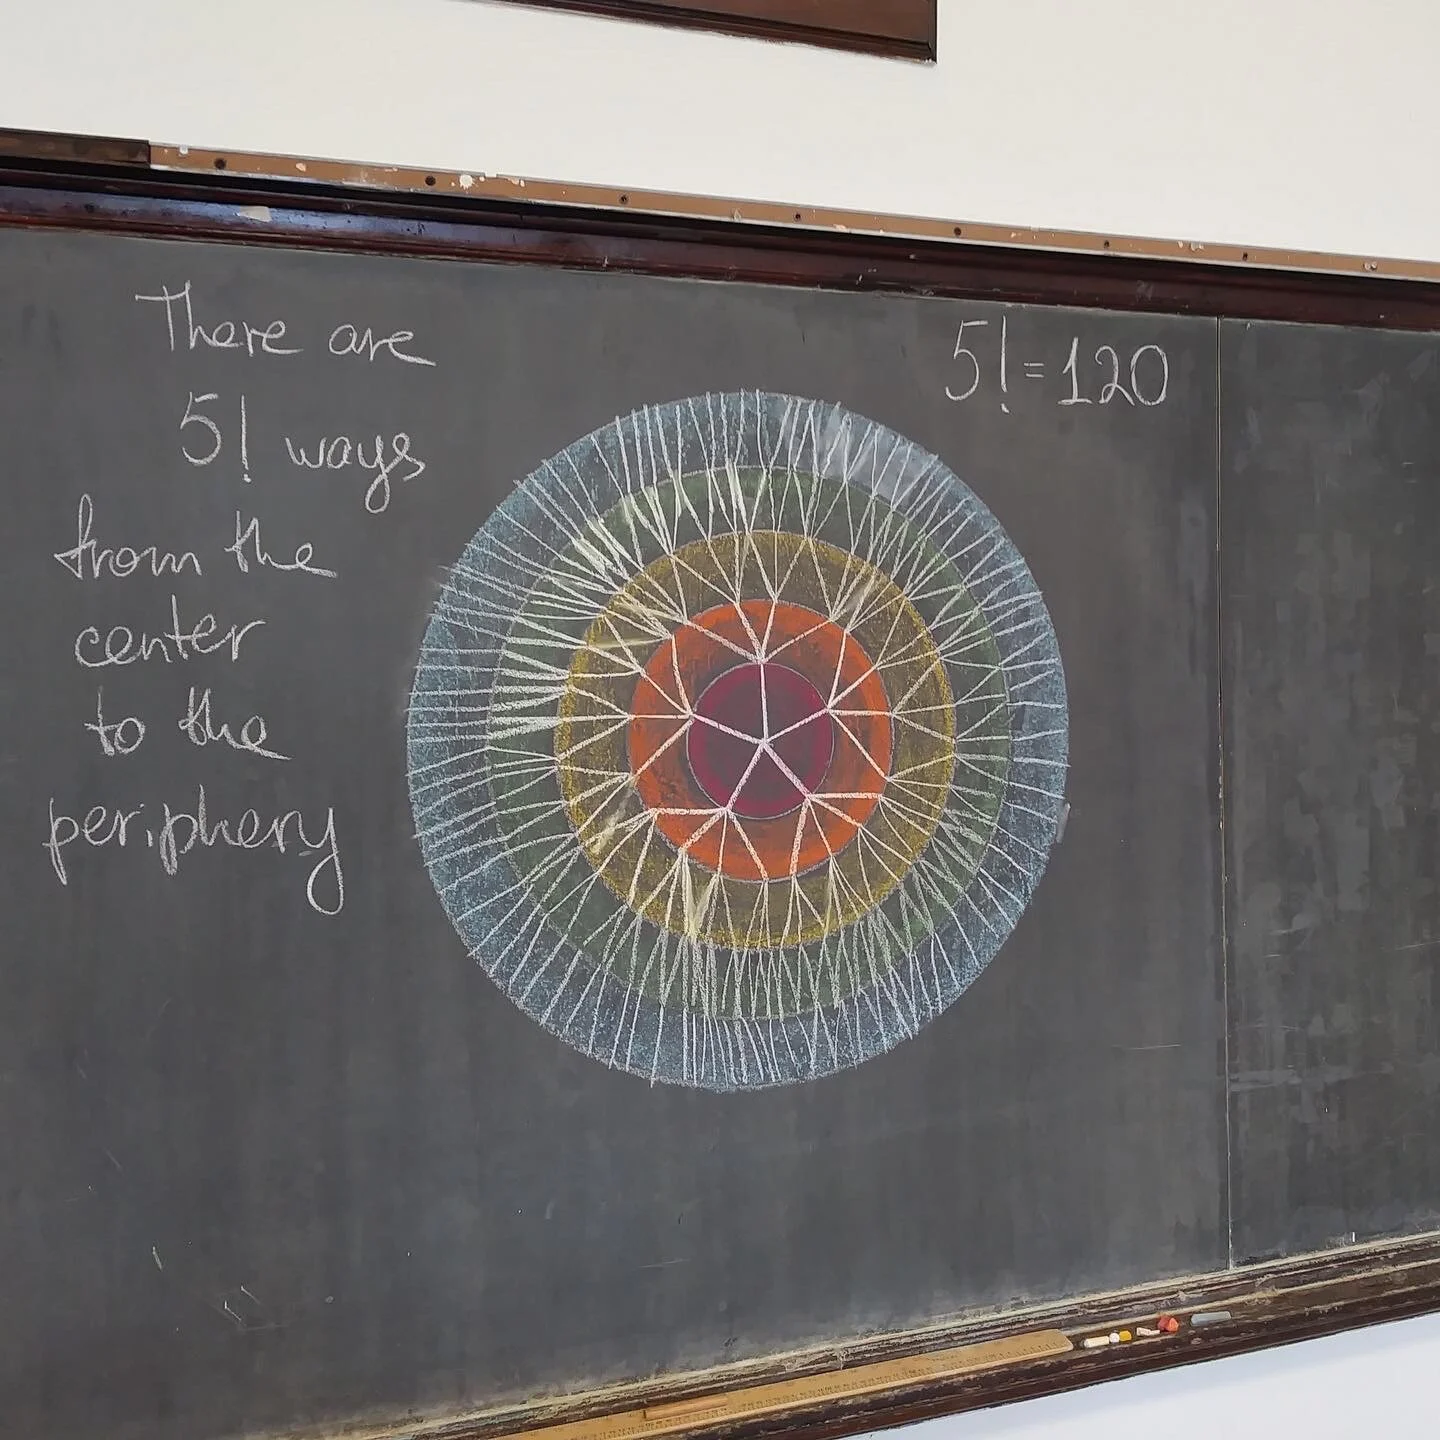 There are
5! ways
from the
center
to the
periphery
5! = 120